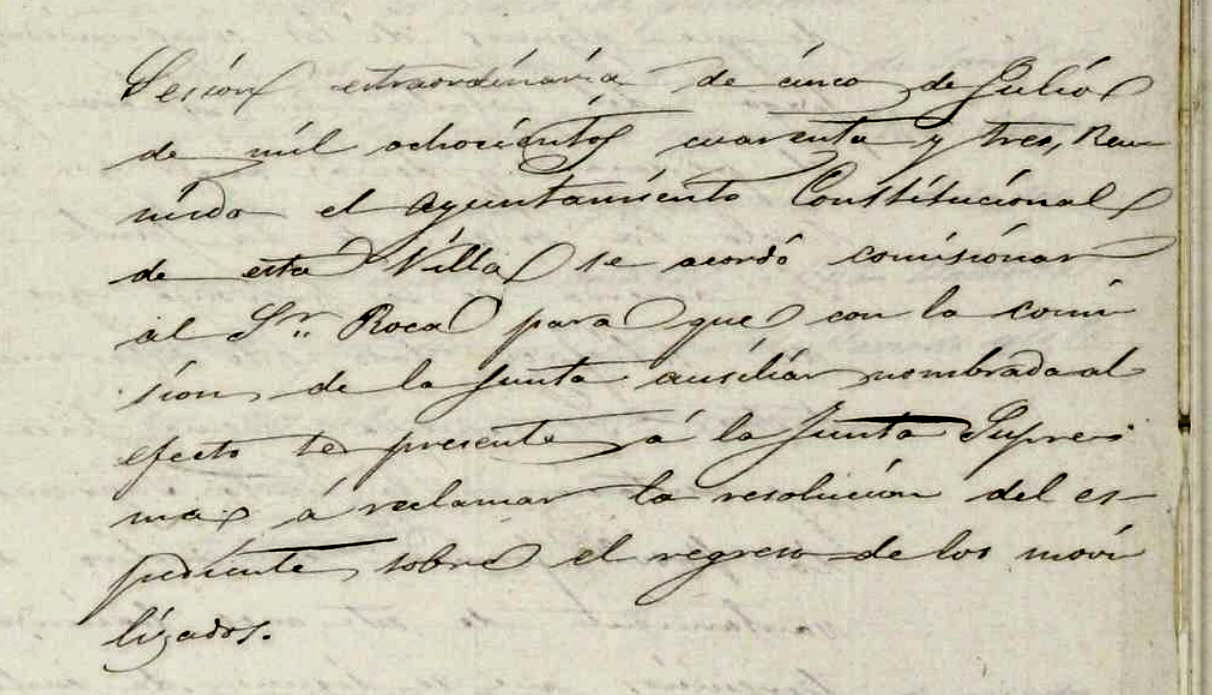 Sesion estraordinaria de cinco de Julio
de mil ochocientos cuarenta y tres, Reu-
nido el Ayuntamiento Constitucional
de esta Villa se acordó comisionar
al Sr. Roca para que con la comi
sion de la Junta ausiliar nombrada al
efecto se presente á la Junta Supre
ma á reclamar la resolucion del es-
pediente sobre el regreso de los movi
lizados.